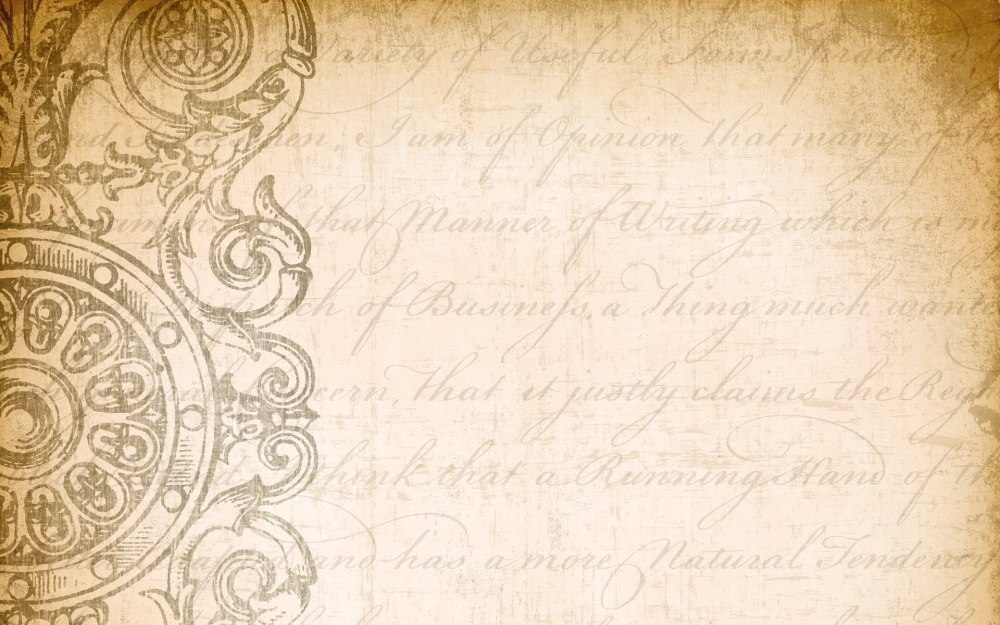 a Variety of Useful Forms practised
I am of Opinion, that many of
that Manner of Writing which is
of Busineſs, a Thing much
that it justly claims the
think that a Running Hand of
and has a more Natural Tendency